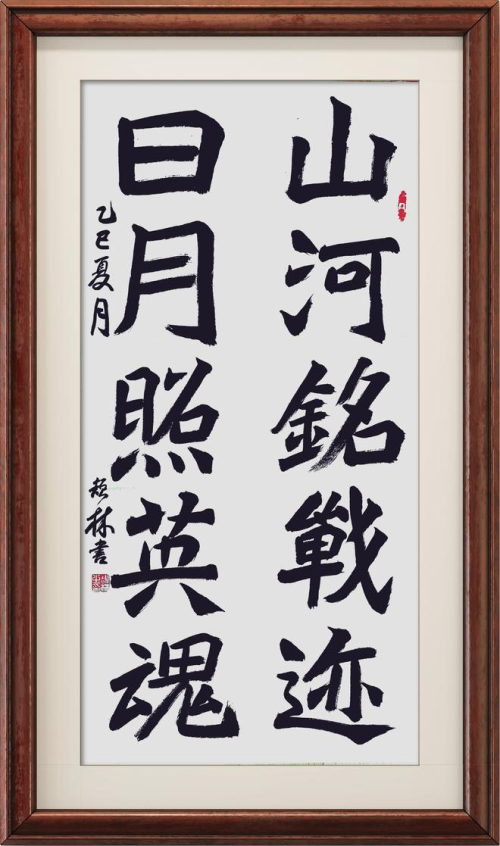 山河銘戰迹
日月照英魂
乙巳夏月
林書